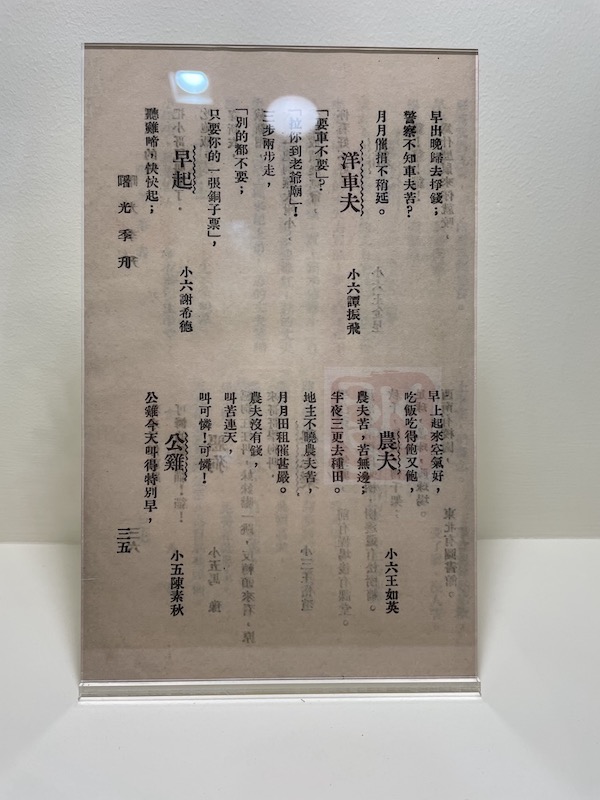 早出晚歸去掙錢;
警察不知車夫苦?
月月催捐不稍延。
洋車夫
小六譚振飛
「要車不要」?
「拉你到老爺廟」!
三步兩步走,
「別的都不要;
只要你的一張銅子票」,
早起
小六謝希德
聽雞啼,快快起;
早上起來空氣好,
吃飯吃得飽又飽,
農夫
小六王如英
農夫苦,苦無邊;
半夜三更去種田。
地主不曉農夫苦,
月月田租催甚嚴。
農夫沒有錢,
叫苦連天,
叫可憐!可憐!
公雞
小五陳素秋
公雞今天叫得特別早,
曙光季刋
三五